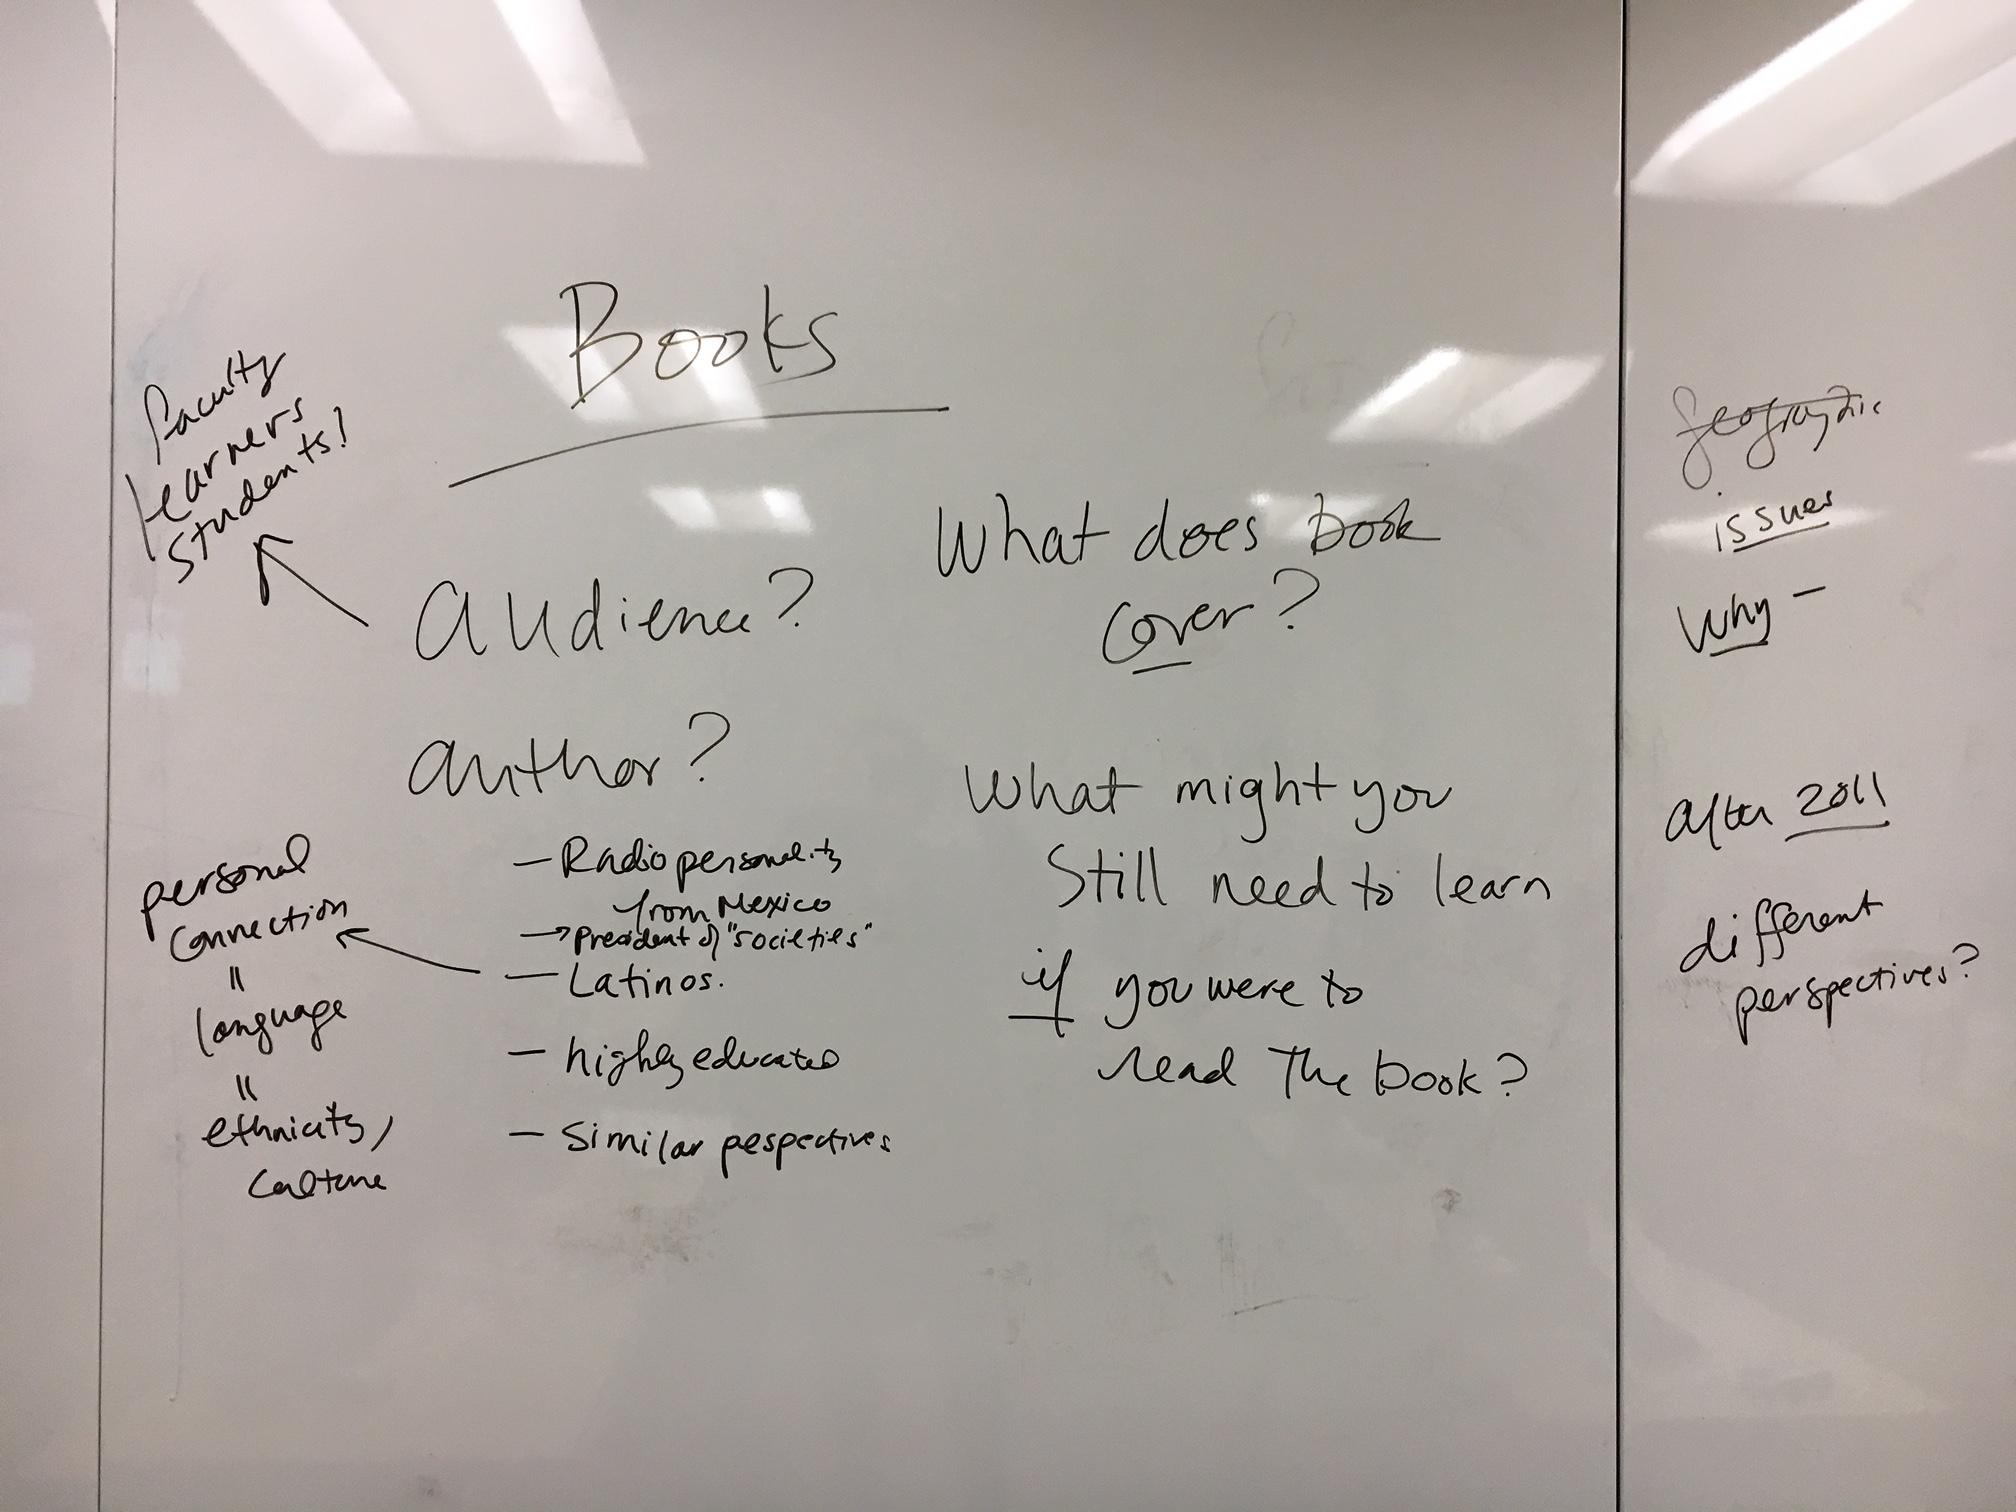 Books
faculty
learners
students!
audience?
author?
- Radio personality
from Mexico
→ President of "societies"
- Latinos.
- highly educated
- Similar pespectives
personal
connection
"
language
"
ethnicity,
culture
What does book
cover?
What might you
Still need to learn
if you were to
read The book?
geographic
issues
Why -
after 2011
different
perspectives?